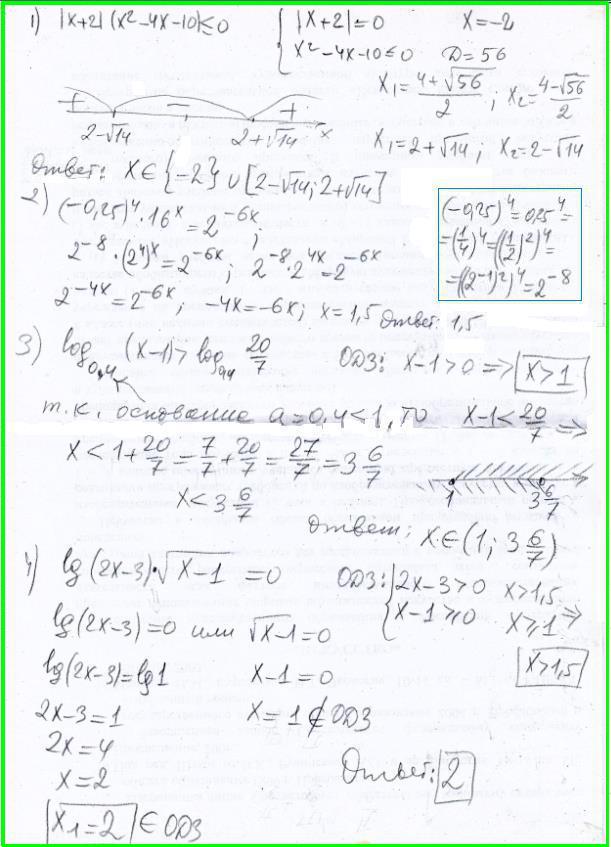 1) |x+2| (x²-4x-10)≤0
{ |x+2|=0 x=-2
x²-4x-10≤0 D=56
x₁=(4+√56)/2 ; x₂=(4-√56)/2
+ − +
2-√14 2+√14 x
x₁=2+√14 ; x₂=2-√14
Ответ: x∈{-2}∪[2-√14; 2+√14]
2) (-0,25)⁴·16ˣ=2⁻⁶ˣ ;
2⁻⁸·(2⁴)ˣ=2⁻⁶ˣ 2⁻⁸·2⁴ˣ=2⁻⁶ˣ
2⁻⁴ˣ=2⁻⁶ˣ ; -4x=-6x; x=1,5 Ответ: 1,5
(-0,25)⁴=0,25⁴=
=(1/4)⁴=((1/2)²)⁴=
=((2⁻¹)²)⁴=2⁻⁸
3) log₀,₄ (x-1)>log₀,₄ 20/7 ОДЗ: x-1>0 => x>1
т.к. основание a=0,4<1, то x-1<20/7 =>
x<1+20/7=7/7+20/7=27/7=3 6/7
x<3 6/7
1 3 6/7
Ответ: x∈(1; 3 6/7)
4) lg(2x-3)·√(x-1) =0 ОДЗ: { 2x-3>0 x>1,5
x-1≥0 x≥1 =>
x>1,5
lg(2x-3)=0 или √(x-1)=0
lg(2x-3)=lg1 x-1=0
2x-3=1 x=1∉ОДЗ
2x=4
x=2
Ответ: 2
x₁=2 ∈ОДЗ